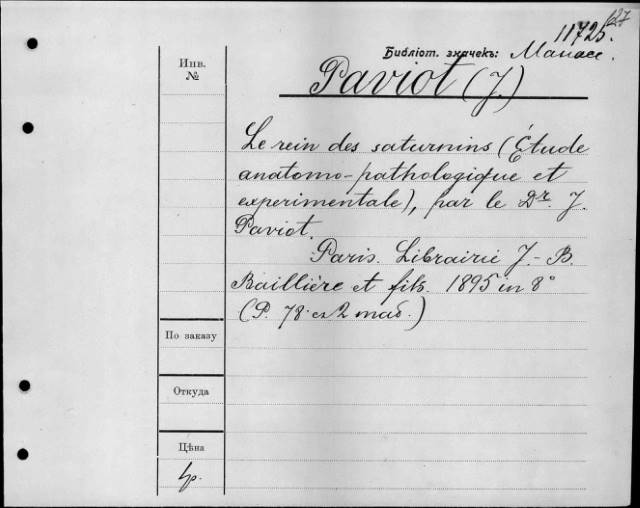 627
11725.
Библіот. значекъ: Манасс.
Инв.
№
Paviot (J.)
Le rein des saturnins (Étude
anatomo-pathologique et
experimentale), par le Dr. J.
Paviot.
Paris. Librairie J.-B.
Baillière et fils. 1895 in 8°
(P. 78 съ 2 таб.)
По заказу
Откуда
Цѣна